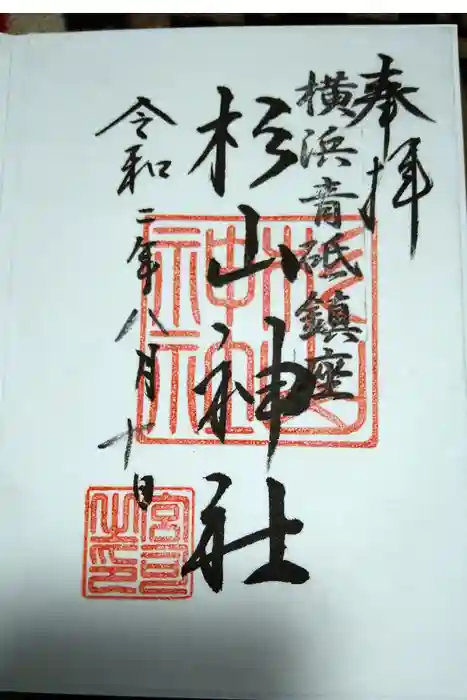 奉拝
横浜青砥鎮座
杉山神社
令和二年八月十日